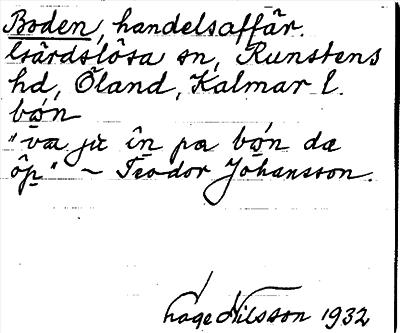 Boden, handelsaffär.
Gärdslösa sn, Runstens
hd, Öland, Kalmar l.
bo̤n
"va jɛ în pa bo̤n da
ôp̤" ~ Teodor Johansson.
Åage Nilsson 1932